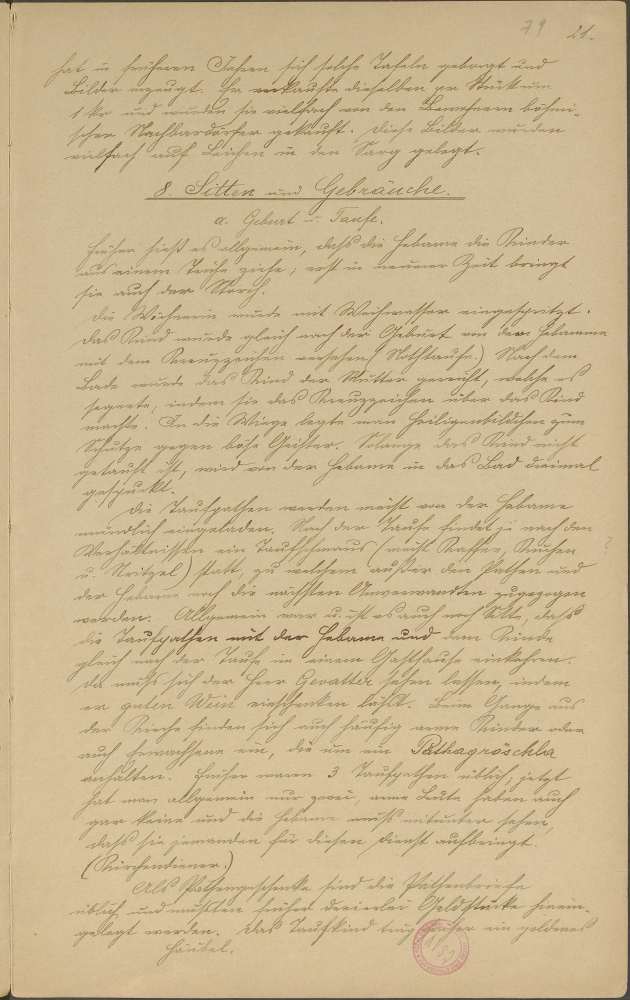 79 21.
hat in früheren Jahren sich solche Tafeln gebörgt und
Bilder erzeugt. Er verkaufte dieselben per Stück um
1 kr und wurden sie vielfach von den Bewohnern böhmi-
scher Nachbardörfer gekauft. Diese Bilder wurden
vielfach auf Leichen in den Sarg gelegt.
8. Sitten und Gebräuche.
a. Geburt u. Taufe.
Früher hieß es allgemein, dass die Hebame die Kinder
aus einem Teiche ziehe, erst in neuerer Zeit bringt
sie auch der Storch.
Die Wöchnerin wurde mit Weihwasser eingespritzt.
Das Kind wurde gleich nach der Geburt von der Hebamme
mit dem Kreuzzeichen versehen (Nothtaufe.) Nach dem
Bade wurde das Kind der Mutter gereicht, welche es
segnete, indem sie das Kreuzzeichen über das Kind
machte. In die Wiege legte man Heiligenbildchen zum
Schutze gegen böse Geister. Solange das Kind nicht
getauft ist, wird von der Hebame in das Bad dreimal
gespuckt.
Die Taufpathen werden meist von der Hebame
mündlich eingeladen. Nach der Taufe findet je nach den
Verhältnissen ein Taufschmaus (meist Kaffee, Kuchen
u. Stritzel) statt, zu welchem außer den Pathen und
der Hebame noch die nächsten Anverwandten zugezogen
werden. Allgemein war u. ist es auch noch Sitte, dass
die Taufpathen mit der Hebame und dem Kinde
gleich nach der Taufe in einem Gasthause einkehren.
Da muss sich der Herr Gevatter sehen lassen, indem
er guten Wein einschenken lässt. Beim Gange aus
der Kirche finden sich auch häufig arme Kinder oder
auch Erwachsene ein, die um ein Pathagröschla
anhalten. Früher waren 3 Taufpathen üblich, jetzt
hat man allgemein nur zwei, arme Leute haben auch
gar keine und die Hebame muss mitunter sehen,
dass sie jemanden für diesen Dienst aufbringt.
(Kirchendiener.)
Als Pathengeschenke sind die Pathenbriefe
üblich und mussten früher dreierlei Geldstücke hinein-
gelegt werden. Das Taufkind trug früher ein goldenes
Häubel.